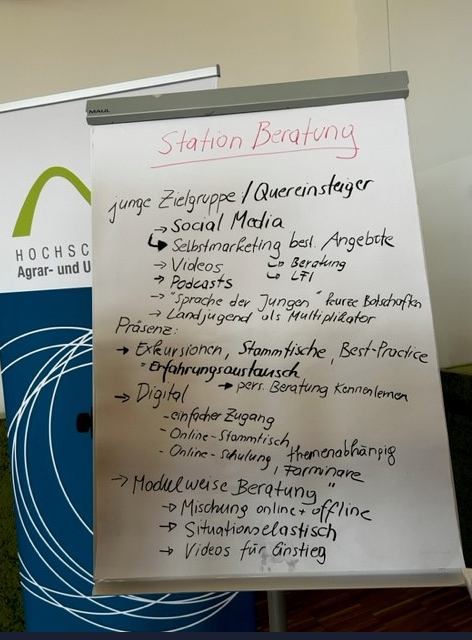 MAUL
Station Beratung
junge Zielgruppe / Quereinsteiger
→ Social Media
↳ Selbstmarketing best. Angebote
→ Videos ↳ Beratung
→ Podcasts ↳ LFI
→ "Sprache der Jungen" kurze Botschaften
→ Landjugend als Multiplikator
Präsenz:
→ Exkursionen, Stammtische, Best-Practice
"Erfahrungsaustausch
→ pers. Beratung kennenlernen
→ Digital
- einfacher Zugang
- Online-Stammtisch
- Online-Schulung, themenabhängig
, Farminare
→ Modulweise Beratung"
→ Mischung online + offline
→ Situationselastisch
→ Videos für Einstieg
HOCHSC
Agrar- und U